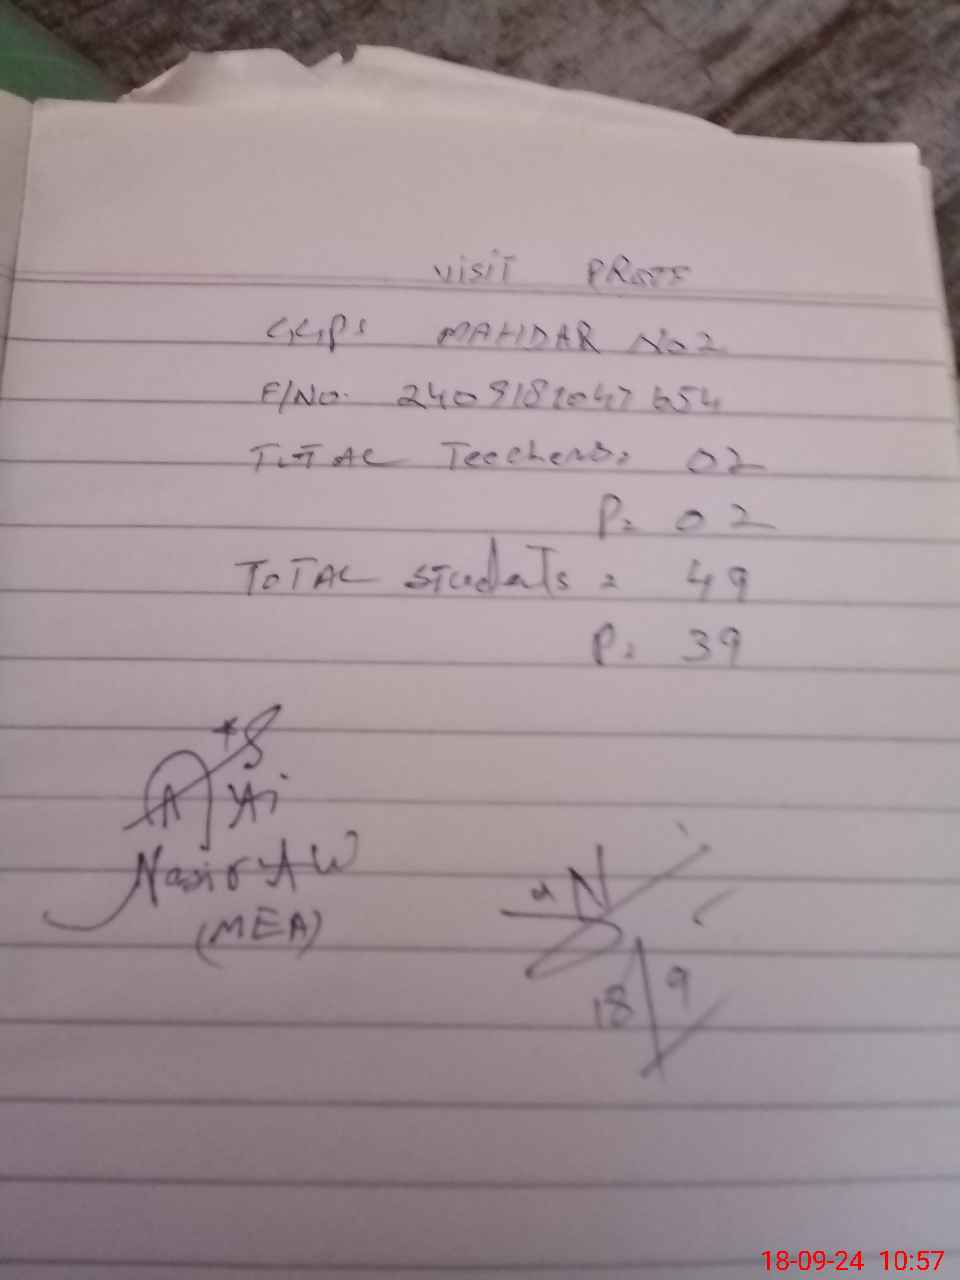 Visit PROFF
GGPS MAHDAR No 2
F/No. 2409181047654
TOTAL Teechers: 02
P: 02
TOTAL Students: 49
P: 39
Nasir
(MEA)
18/9
18-09-24 10:57